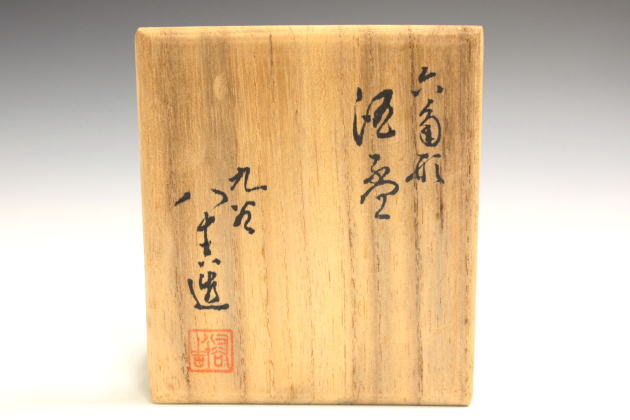 六角形
酒盃
九谷
八十吉造